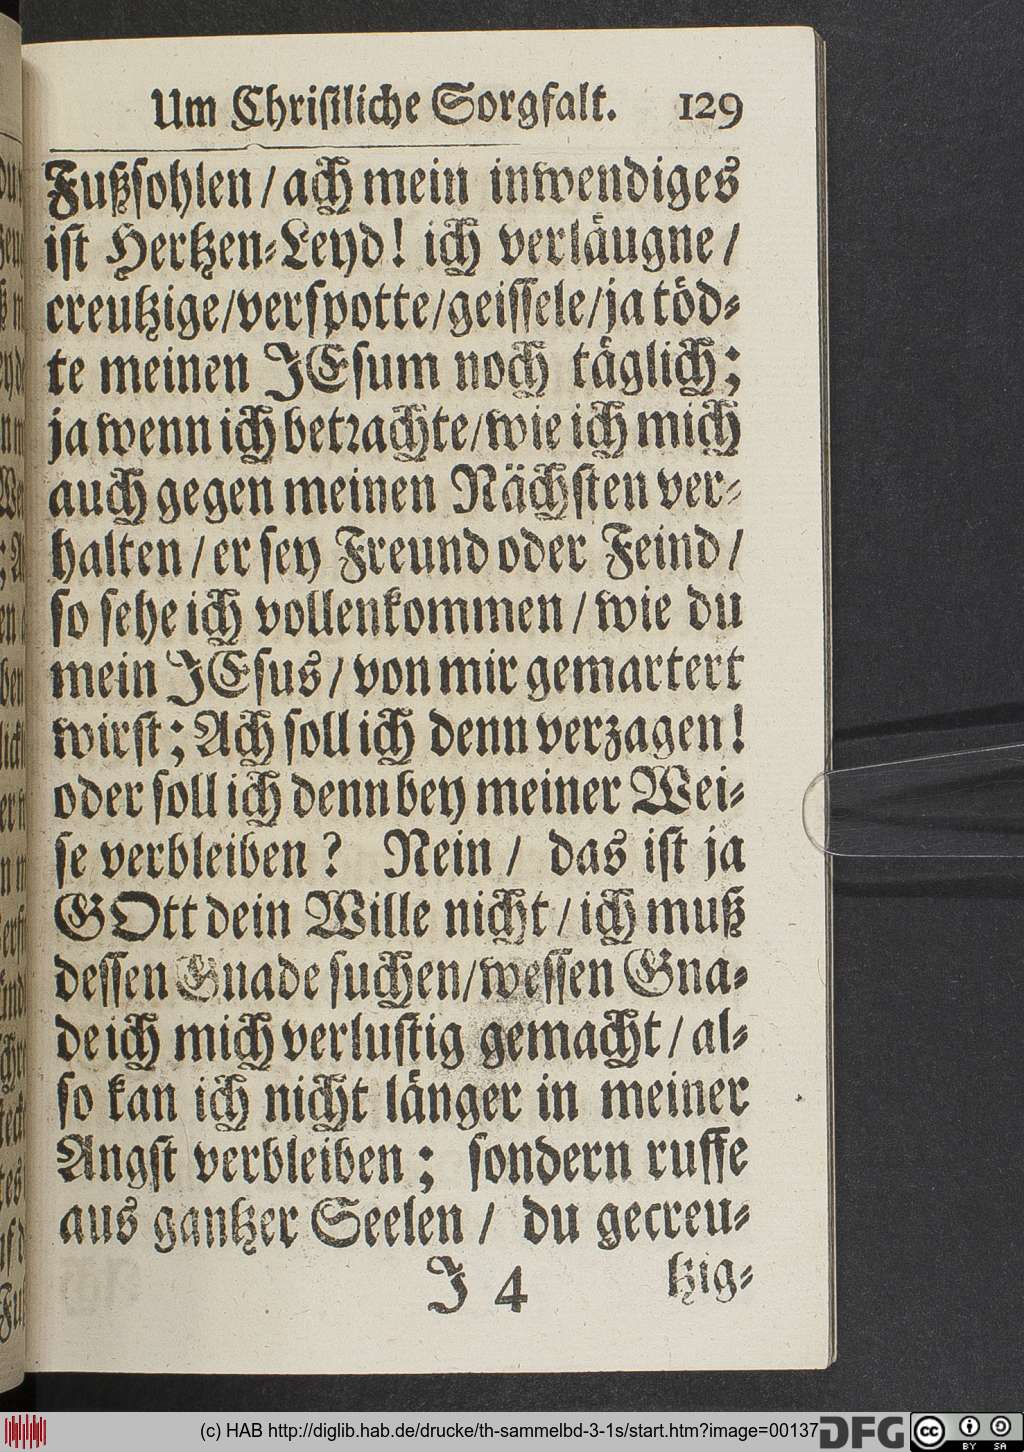 Um Christliche Sorgfalt. 129
Fußsohlen / ach mein inwendiges
ist Hertzen-Leyd! ich verläugne /
creutzige/verspotte/geissele/ja töd-
te meinen JEsum noch täglich;
ja wenn ich betrachte/wie ich mich
auch gegen meinen Nächsten ver-
halten / er sey Freund oder Feind /
so sehe ich vollenkommen / wie du
mein JEsus / von mir gemartert
wirst; Ach soll ich denn verzagen!
oder soll ich denn bey meiner Wei-
se verbleiben? Nein / das ist ja
GOtt dein Wille nicht / ich muß
dessen Gnade suchen/wessen Gna-
de ich mich verlustig gemacht / al-
so kan ich nicht länger in meiner
Angst verbleiben; sondern ruffe
aus gantzer Seelen / du gecreu-
J 4 tzig-
(c) HAB http://diglib.hab.de/drucke/th-sammelbd-3-1s/start.htm?image=00137
DFG
cc BY SA